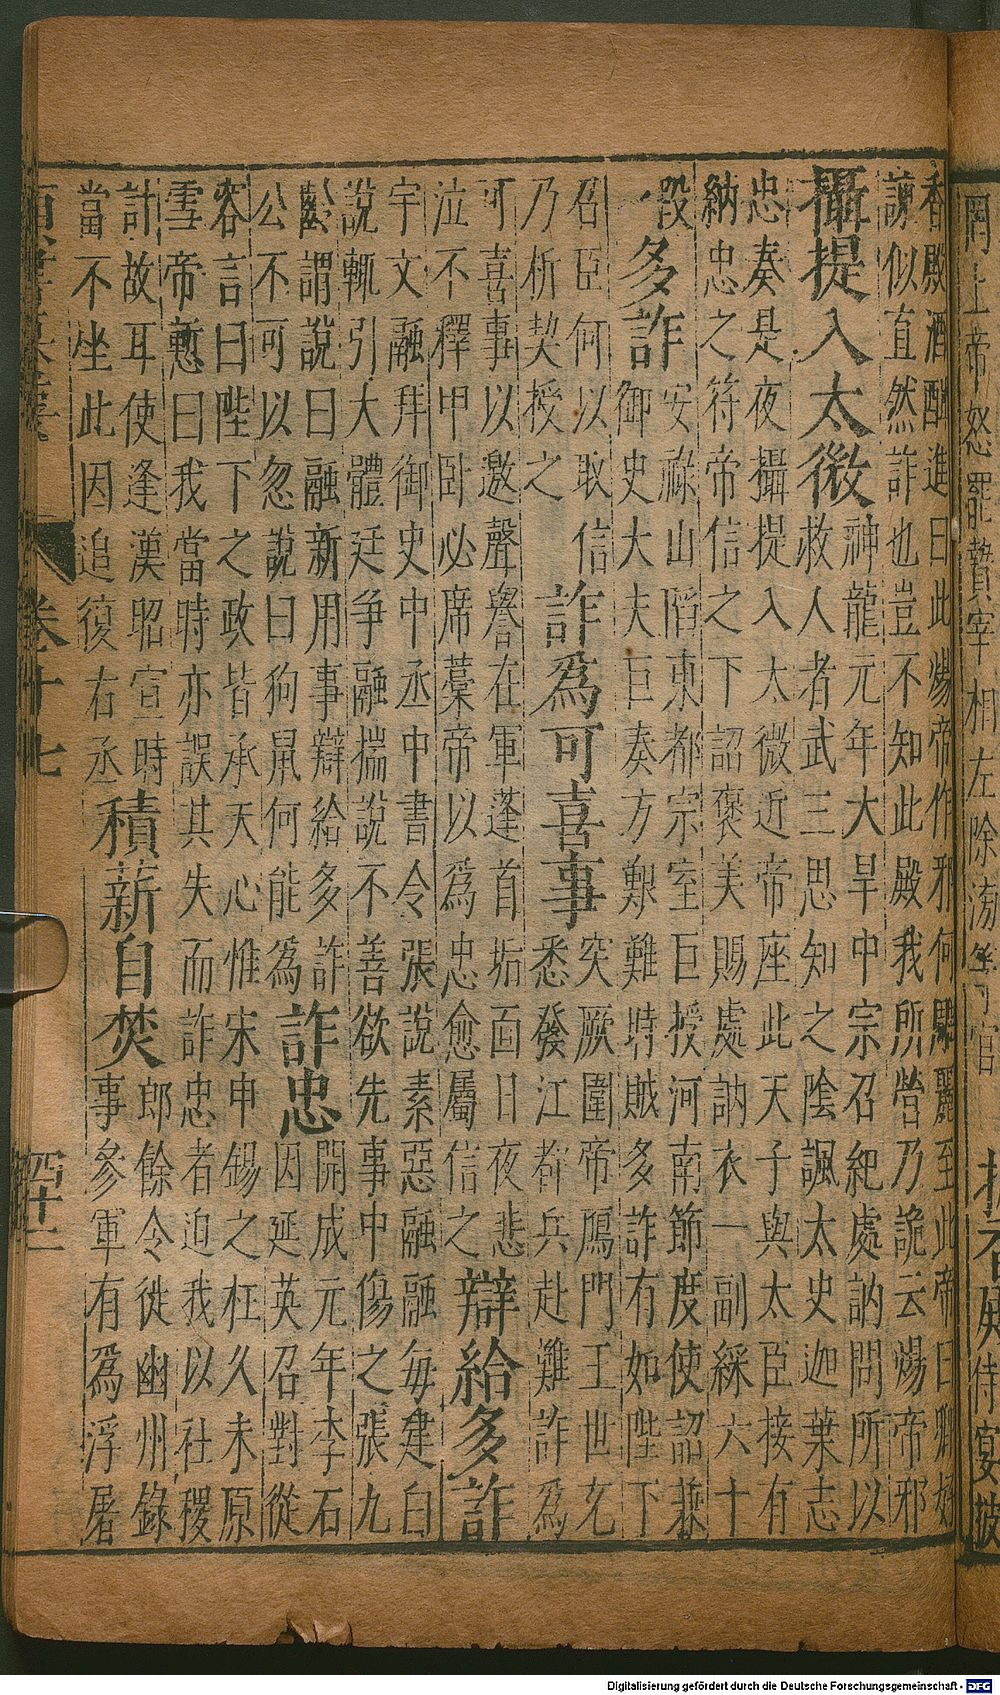 香殿酒酣進曰此煬帝作邪何雕麗至此帝曰卿好
諫似直然詐也豈不知此殿我所營乃詭云煬帝邪
攝提入太微
神龍元年大旱中宗召紀處訥問所以
救人者武三思知之陰諷太史迦葉志
忠奏是夜攝提入太微近帝座此天子與太臣接有
納忠之符帝信之下詔褒美賜處訥衣一副綵六十
叚
多詐
安祿山陷東都宗室巨授河南節度使詔兼
御史大夫巨奏方艱難時賊多詐有如陛下
召臣何以取信
乃析契授之
詐爲可喜事
突厥圍帝鴈門王世充
悉發江都兵赴難詐爲
可喜事以邀聲譽在軍蓬首垢面日夜悲
泣不釋甲臥必席藁帝以爲忠愈屬信之
辯給多詐
宇文融拜御史中丞中書令張說素惡融融每建白
說輒引大體廷爭融揣說不善欲先事中傷之張九
齡謂說曰融新用事辯給多詐
公不可以忽說曰狗鼠何能爲
詐忠
開成元年李石
因延英召對從
容言曰陛下之政皆承天心惟宋申錫之枉久未原
雪帝慙曰我當時亦誤其失而詐忠者迫我以社稷
計故耳使逢漢昭宣時
當不坐此因追復右丞
積薪自焚
郎餘令徙幽州錄
事參軍有爲浮屠
卷十七
四十二
Digitalisierung gefördert durch die Deutsche Forschungsgemeinschaft - DFG